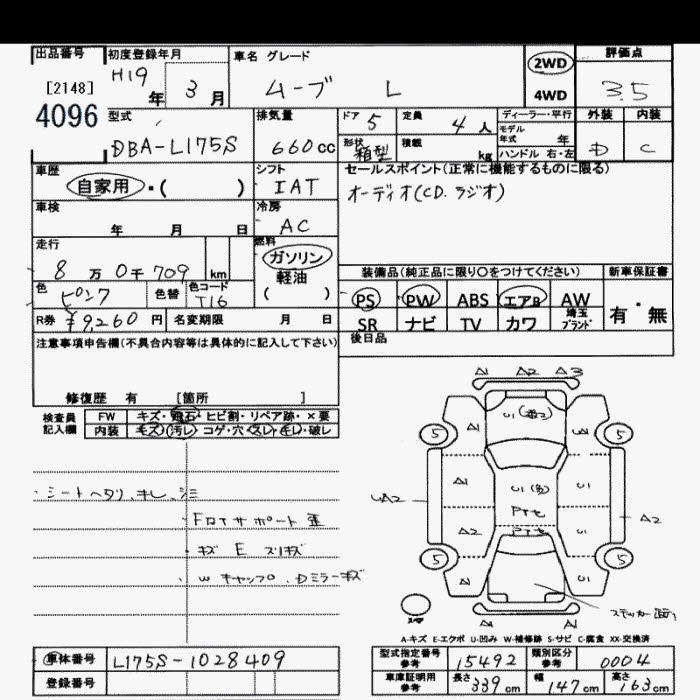 出品番号 初度登録年月 車名 グレード 評価点
[2148] H19 年 3 月 ムーブ L 2WD 3.5
4096 4WD
型式 排気量 ドア 5 定員 4 人 ディーラー・平行 外装 内装
DBA-L175S 660cc 形状 箱型 積載 kg モデル年式 年 D C
ハンドル 右・左
車歴 シフト セールスポイント(正常に機能するものに限る)
自家用・( ) IAT オーディオ(CD.ラジオ)
車検 冷房
年 月 日 AC
走行 燃料
8 万 0 千 709 km ガソリン
軽油
( )
装備品(純正品に限り○をつけてください) 新車保証書
色 ピンク 色替 色コード T16 PS PW ABS エアB AW 有・無
R券 ¥9,260 円 名変期限 月 日 SR ナビ TV カワ 埼玉ブランド
注意事項申告欄(不具合内容等は具体的に記入して下さい) 後日品
修復歴 有 [箇所 ]
検査員記入欄 FW キズ・飛石・ヒビ割・リペア跡・×要
内装 キズ・汚レ・コゲ・穴・スレ・キレ・破レ
・シートヘタリ、キレ、シミ
・キズ E スリキズ
A1 A2 A3
5 A1 5
A1
UA2 A1 A2 U1
A2
5 A1 U1 5
A1 A1
A-キズ E-エクボ U-凹み W-補修跡 S-サビ C-腐食 XX-交換済
車体番号 L175S-1028409
登録番号
型式指定番号参考 15492 類別区分参考 0004
車庫証明用参考 長さ 339 cm 幅 147 cm 高さ 163 cm